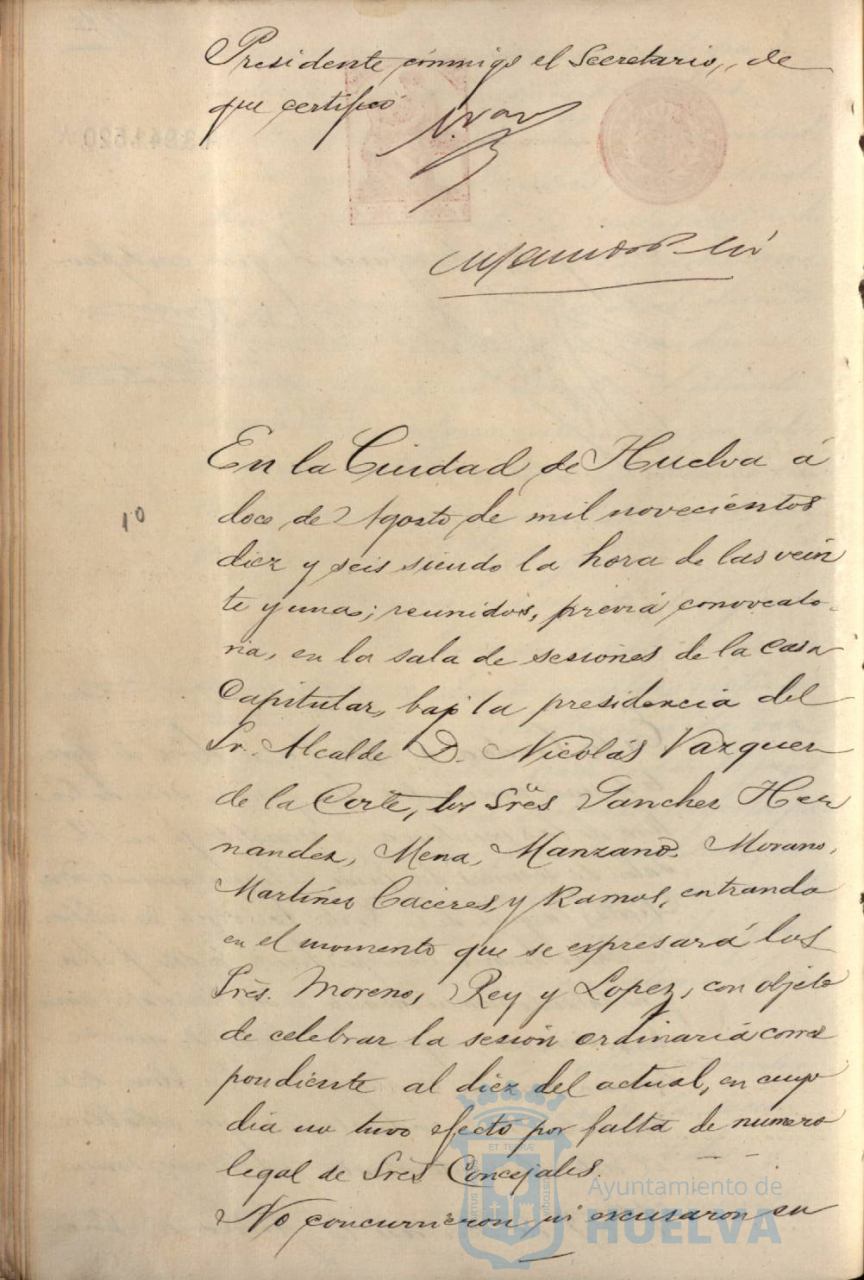 Presidente, cónmigo el Secretario, de
que certifico
En la Ciudad de Huelva á
doce de Agosto de mil novecientos
diez y seis siendo la hora de las vein
te y una; reunidos, previá convocato-
ria, en la sala de sesiones de la Casa
Capitular, bajo la presidencia del
Sr. Alcalde D. Nicolás Vazquez
de la Corte, los Sres Sanchez Her
nandez, Mena, Manzano, Morano,
Martinez Caceres, y Ramos, entrando
en el momento que se expresará los
Sres. Moreno, Rey y Lopez, con objeto
de celebrar la sesión ordinaria corres
pondiente al diez del actual, en cuyo
dia no tuvo efecto por falta de número
legal de Sres Concejales.
No concurrieron ni excusaron su
10
Ayuntamiento de
HUELVA